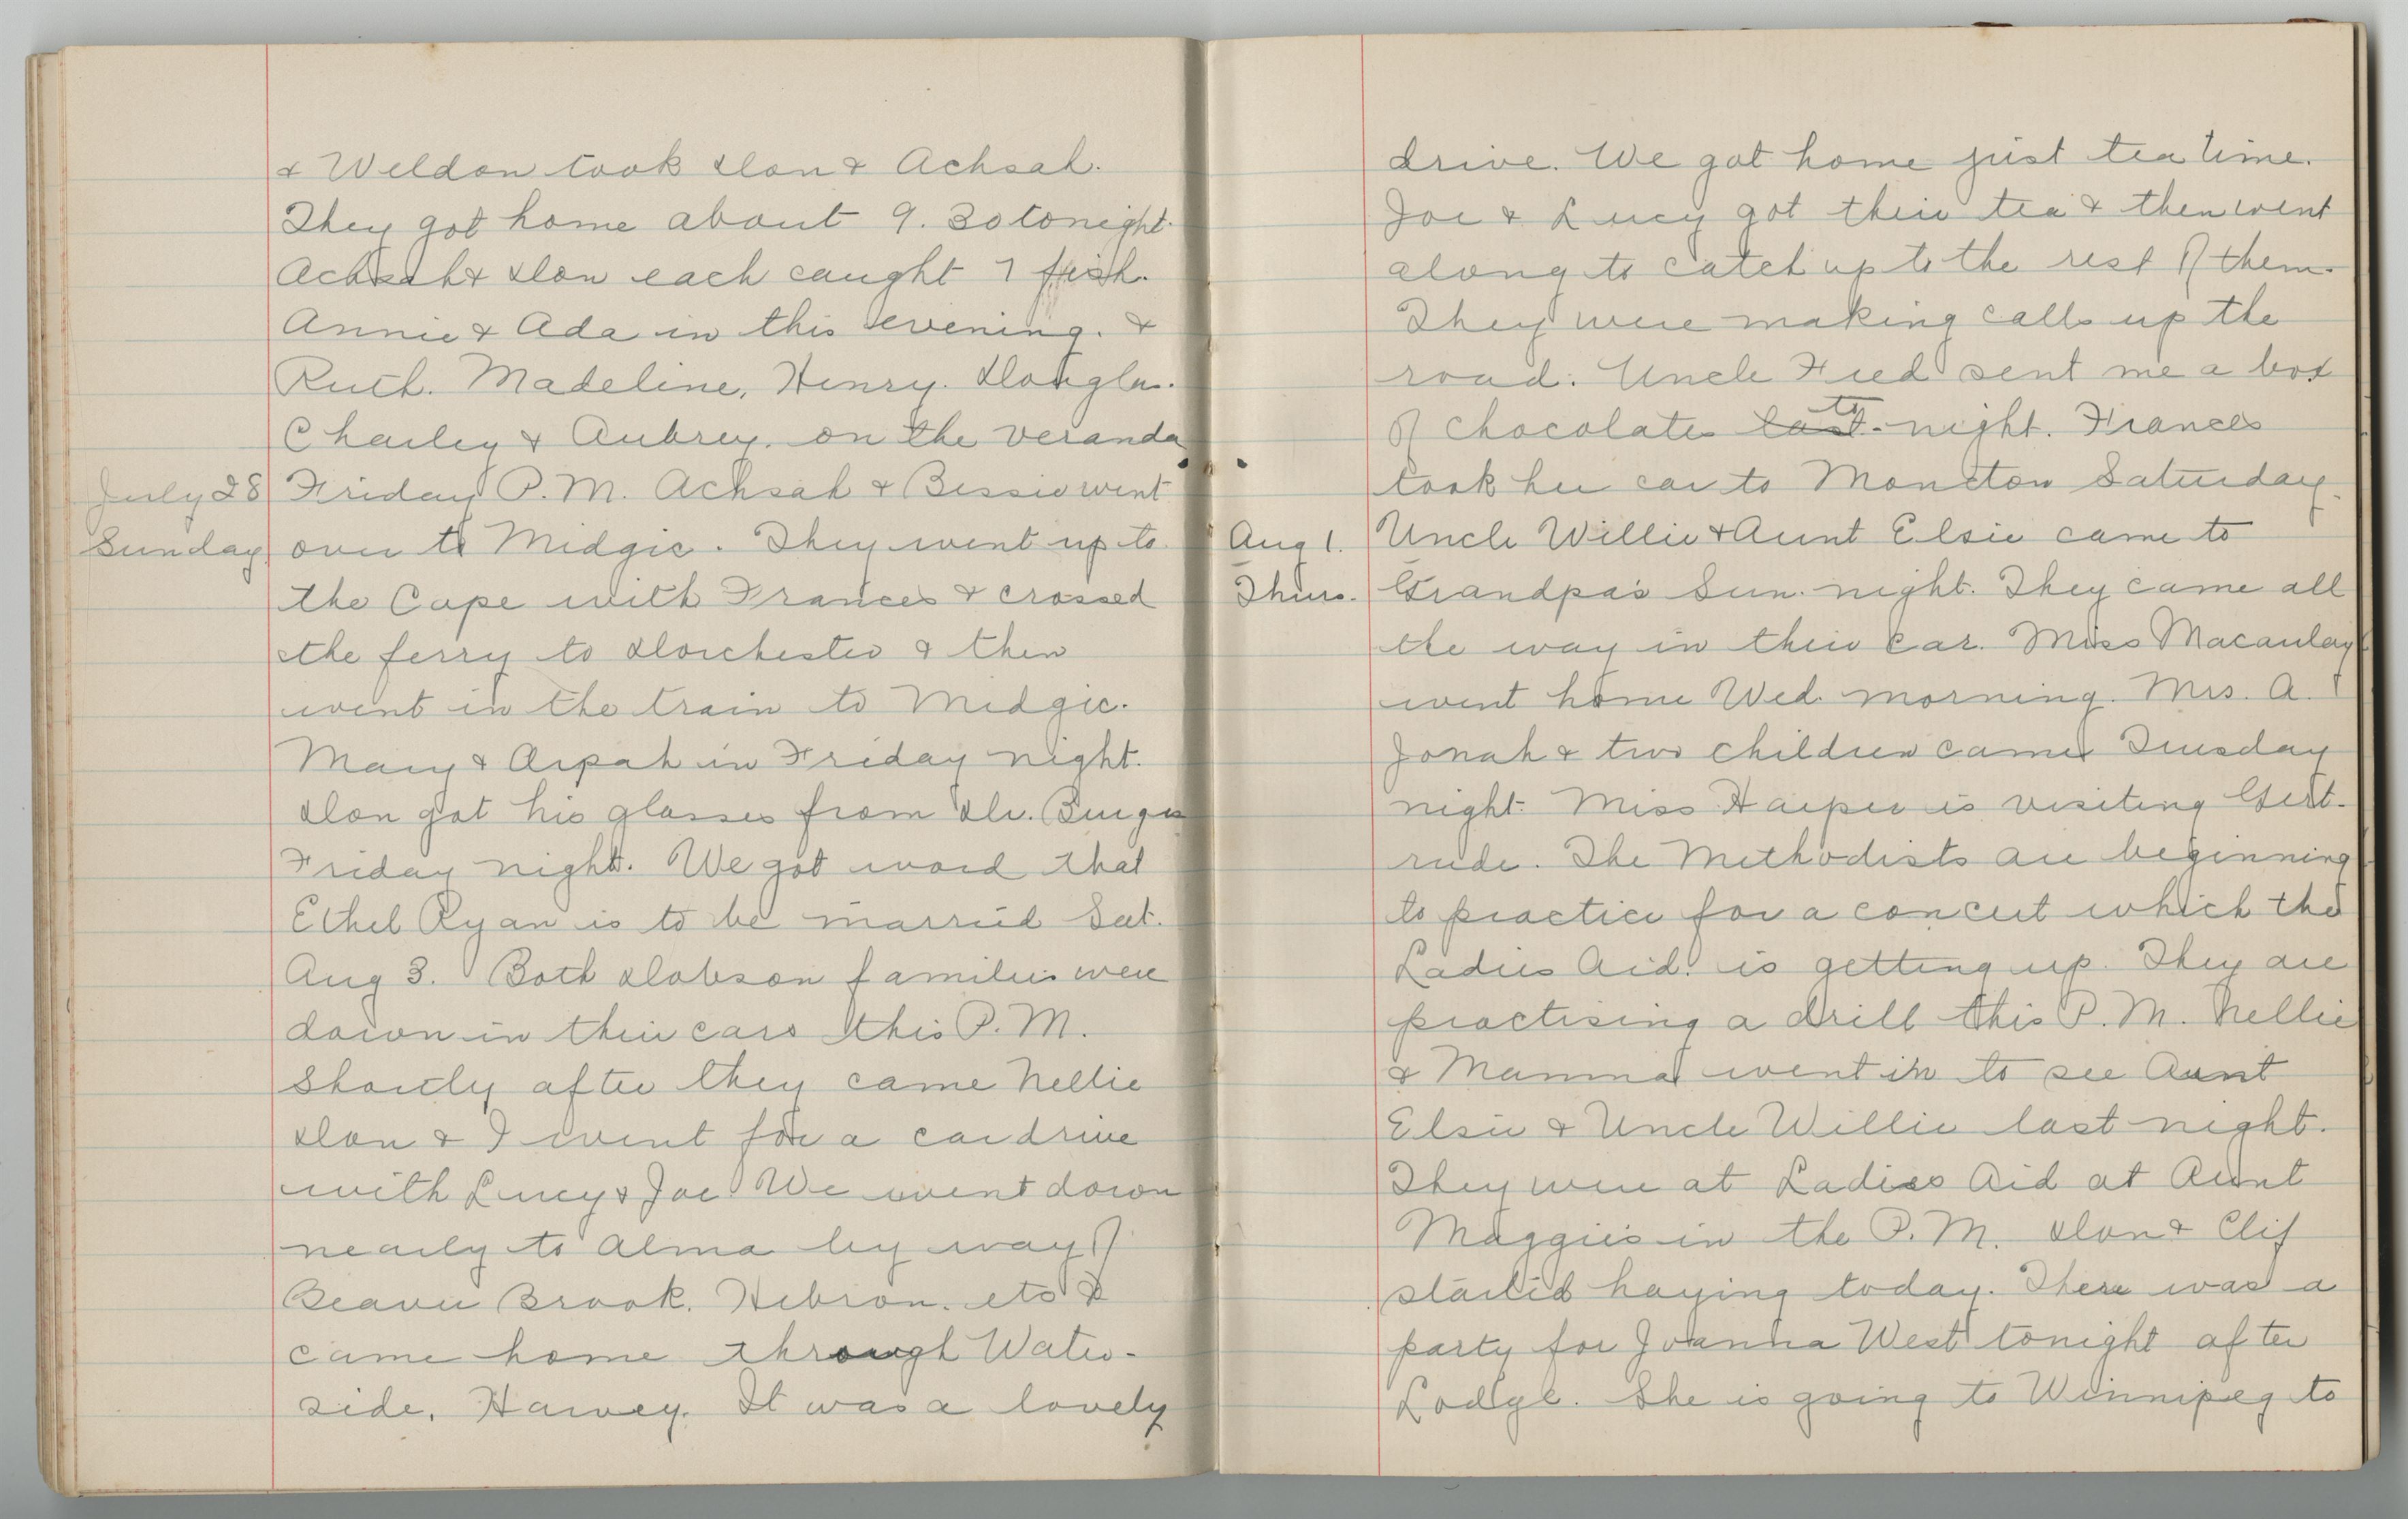 & Weldon took Don & Achsah.
They got home about 9.30 tonight.
Achsah & Don each caught 7 fish.
Annie & Ada in this evening. &
Ruth. Madeline, Henry. Douglas.
Charley & Aubrey. on the veranda
July 28 Friday P.M. Achsah & Bessie went
Sunday over to Midgic. They went up to
the Cape with Frances & crossed
the ferry to Dorchester & then
went in the train to Midgic.
Mary & Arpah in Friday night.
Don got his glasses from Dr. Burgess
Friday night. We got word that
Ethel Ryan is to be married Sat.
Aug 3. Both Dobson families were
down in their cars this P.M.
Shortly after they came Nellie
Don & I went for a car drive
with Lucy & Joe. We went down
nearly to Alma by way of
Beaver Brook. Hebron. etc &
came home through Water-
side, Harvey. It was a lovely
drive. We got home just tea time.
Joe & Lucy got their tea & then went
along to catch up to the rest of them.
They were making calls up the
road. Uncle Fred sent me a box
of chocolates last to-night. Frances
took her car to Moncton Saturday.
Aug 1. Uncle Willie & Aunt Elsie came to
Thurs. Grandpa's Sun. night. They came all
the way in their car. Miss Macaulay
went home Wed. morning. Mrs. A. T
Jonah & two children came Tuesday
night. Miss Harper is visiting Gert-
rude. The Methodists are beginning
to practice for a concert which the
Ladies Aid. is getting up. They are
practising a drill this P.M. Nellie
& Mamma went in to see Aunt
Elsie & Uncle Willie last night.
They were at Ladies Aid at Aunt
Maggie's in the P.M. Don & Clif
started haying today. There was a
party for Joanna West tonight after
Lodge. She is going to Winnipeg to